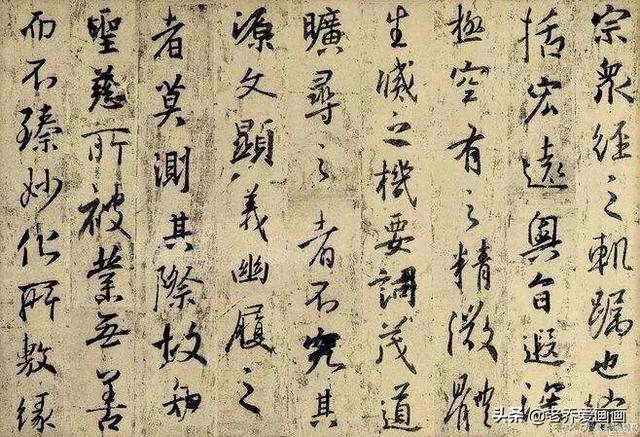 宗眾經之軌躅也綜
括宏遠奧旨遐深
極空有之精微體
生滅之機要詞茂道
曠尋之者不究其
源文顯義幽履之
者莫測其際故知
聖慈所被業無善
而不臻妙化所敷緣
头条 @老乔爱画画